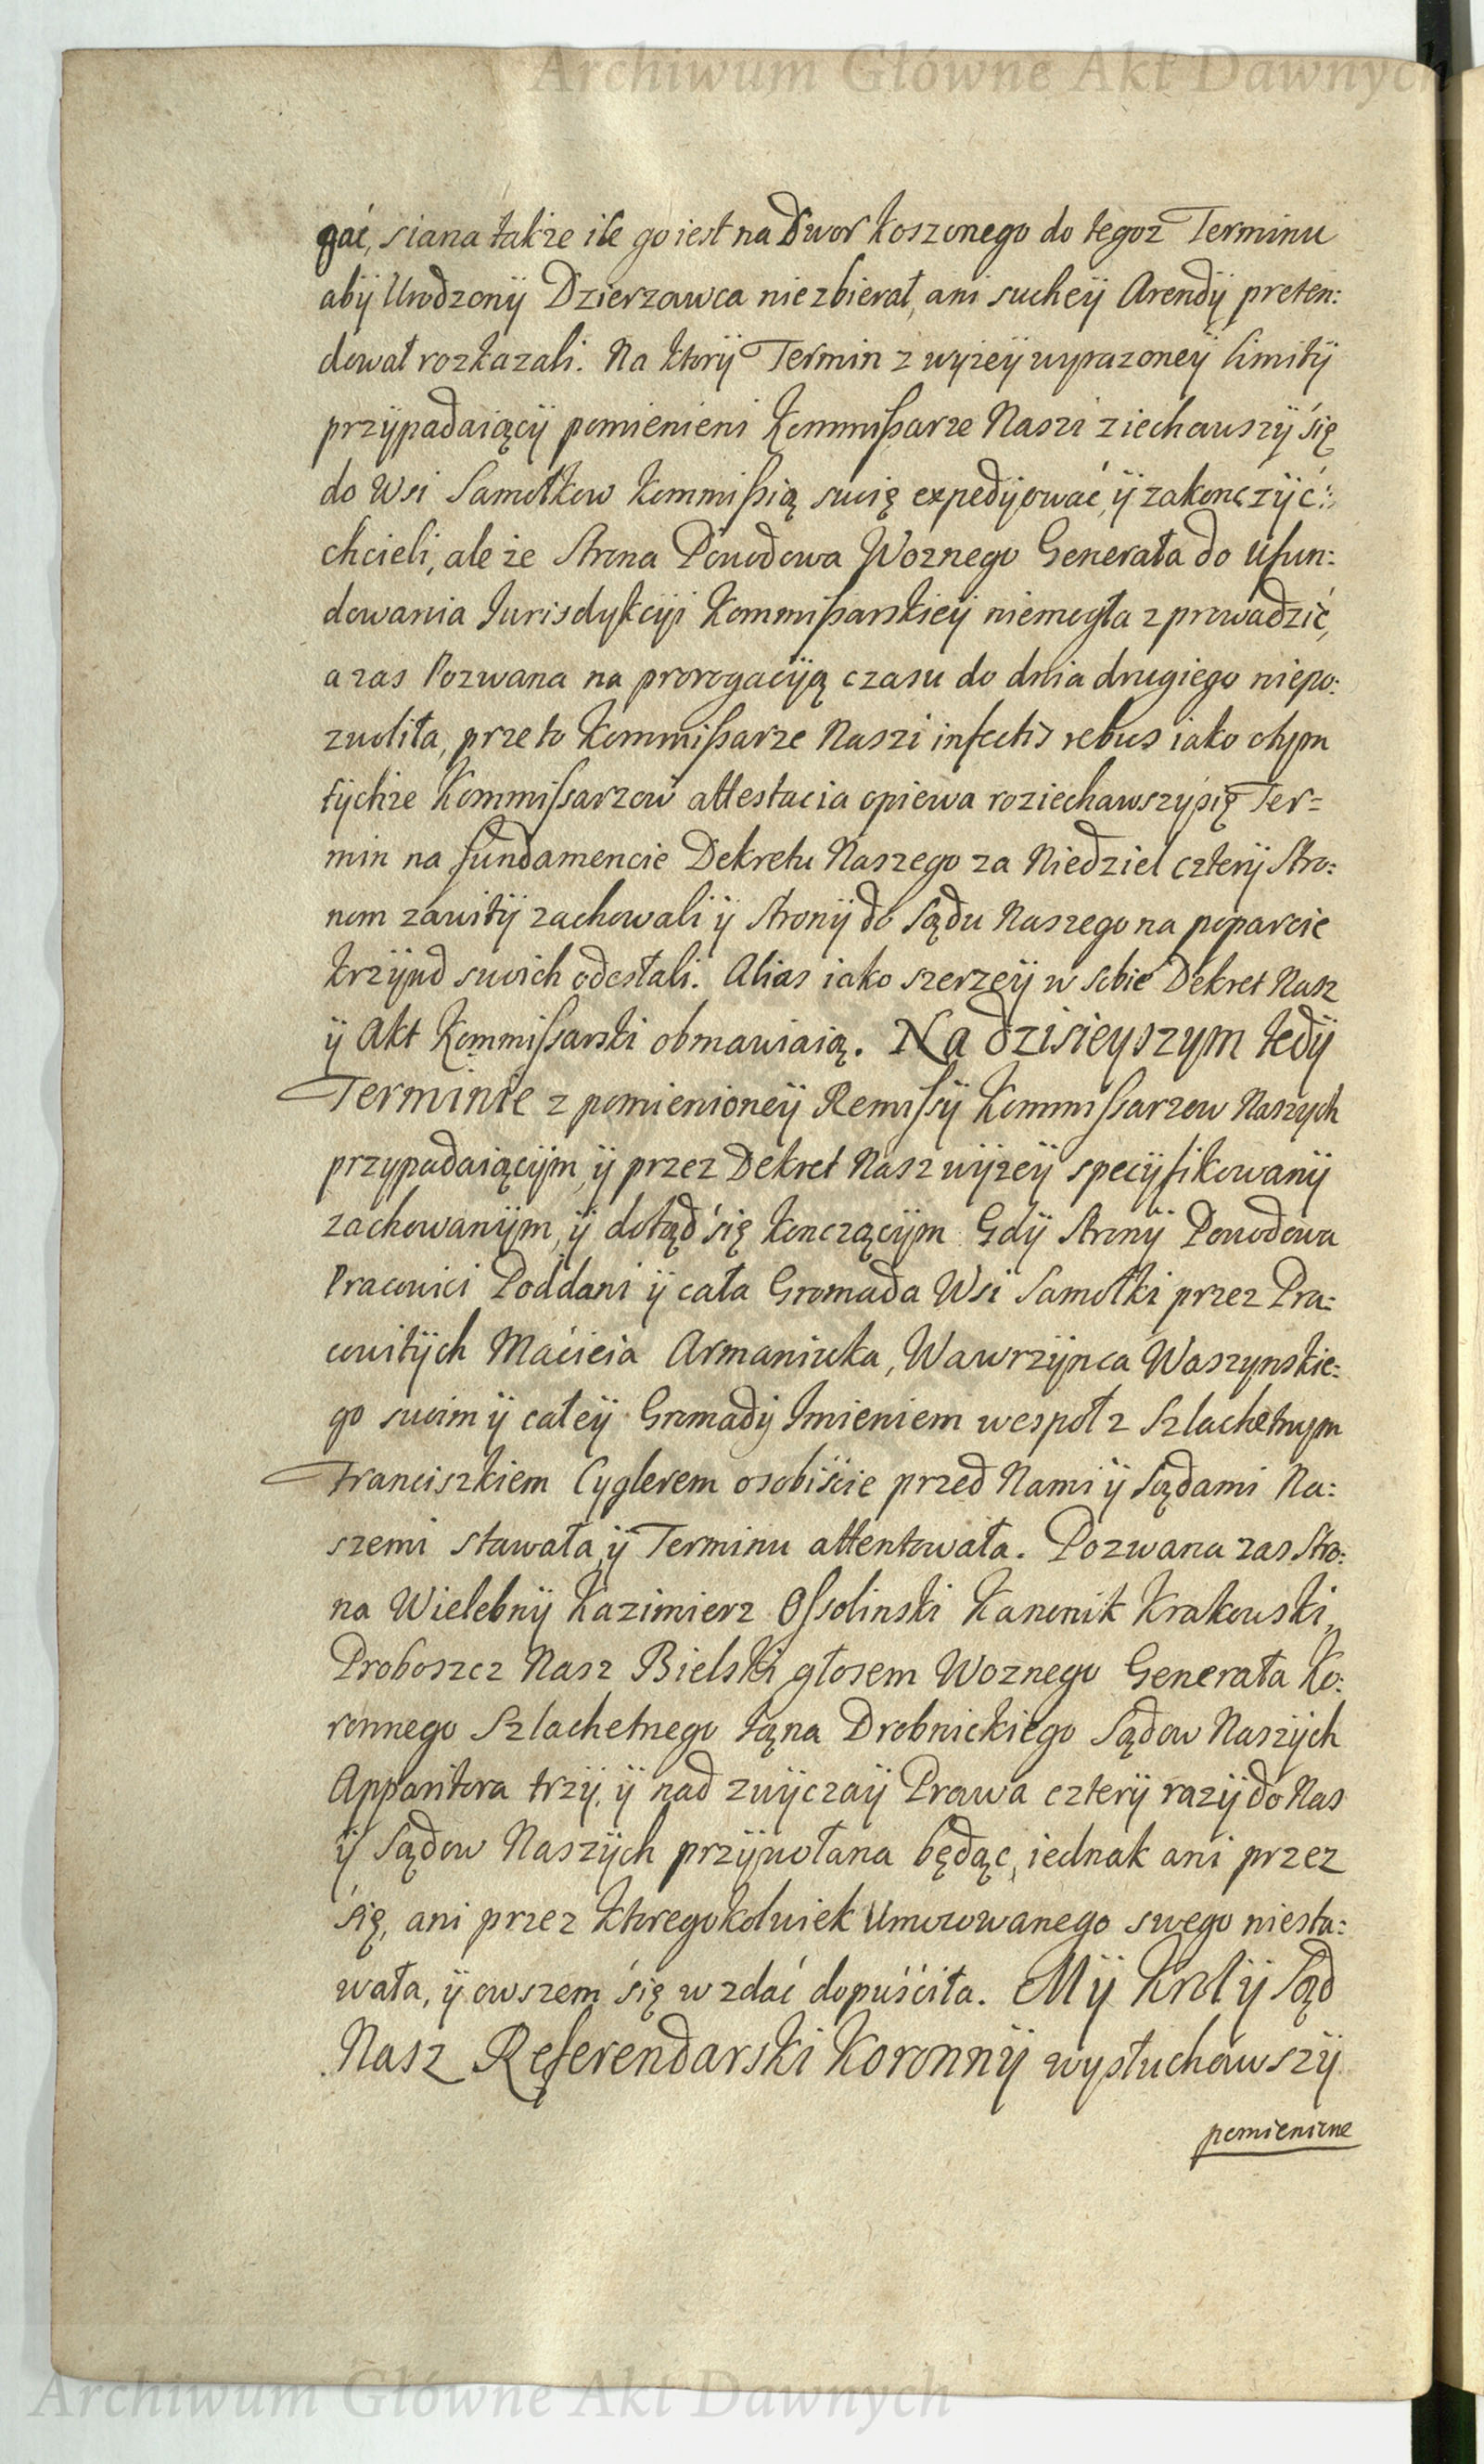 Archiwum Główne Akt Dawnych
gać, siana także ile go iest na Dwor koszonego do tegoz Terminu
abÿ Urodzonÿ Dzierzawca niezbierał, ani sucheÿ Arendÿ preten:
dował rozkazali. Na ktorÿ Termin z wyzeÿ wyrazoneÿ limitÿ
przÿpadaiącÿ pomienieni Kommißarze Naszi ziechawszÿ się
do Wsi Samołkow Kommißią swię expedÿować, ÿ zakonczÿć:
chcieli, ale że Strona Powodowa Woznego Generała do ufun:
dowania Jurisdykcÿi Kommißarskieÿ niemogła zprowadzić,
a zas Pozwana na prorogacÿą czasu do dnia drugiego niepo:
zwoliła, przeto Kommißarze Naszi infectis rebus iako otym
tÿchże Kommissarzow attestacia opiewa roziechawszÿsię Ter=
min na fundamencie Dekretu Naszego za Niedziel czterÿ Stro:
nom zawitÿ zachowali ÿ Stronÿ do Sądu Naszego na poparcie
krzÿwd swoich odesłali. Alias iako szerzeÿ w sobie Dekret Nasz
ÿ Akt Kommissarski obmawiaią. Na dzisieyszym tedÿ
Terminie z pomienioneÿ Remissÿ Kommissarzow Naszych
przypadaiącÿm, ÿ przez Dekret Nasz wÿzeÿ specÿfikowanÿ
zachowanÿm, ÿ dotąd się konczącÿm Gdÿ Stronÿ Powodowa
Pracowici Poddani ÿ cała Gromada Wsi Samołki przez Pra:
cowitÿch Macieia Armaniuka, Wawrzÿnca Waszynskie:
go swoim ÿ całeÿ Gromadÿ Imieniem wespoł z Szlachetnym
Franciszkiem Cyglerem osobiście przed Nami ÿ Sądami Na:
szemi stawała, ÿ Terminu attentowała. Pozwana zas Stro:
na Wielebnÿ Kazimierz Ossolinski Kanonik Krakowski,
Proboszcz Nasz Bielski głosem Woznego Generała Ko:
ronnego Szlachetnego Łąna Drobnickiego Sądow Naszÿch
Apparitora trzÿ, ÿ nad zwÿczaÿ Prawa czterÿ razÿ do Nas
ÿ Sądow Naszÿch przÿwołana będąc, iednak ani przez
się, ani przez ktoregokolwiek Umocowanego swego niesta:
wała, ÿ owszem się w zdać dopuściła. Mÿ Krol ÿ Sąd
Nasz Referendarski Koronnÿ wysłuchawszÿ
pomienione
Archiwum Główne Akt Dawnych